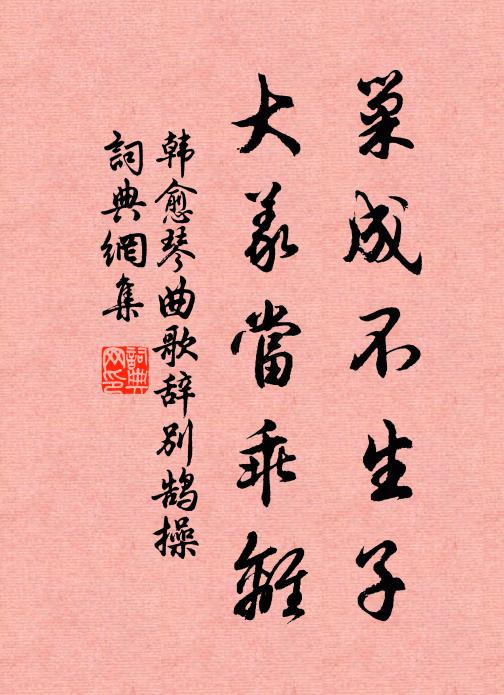 巢成不生子
大義當乖離
韩愈琴曲歌辞别鹄操
詞典網集
詞典
网印